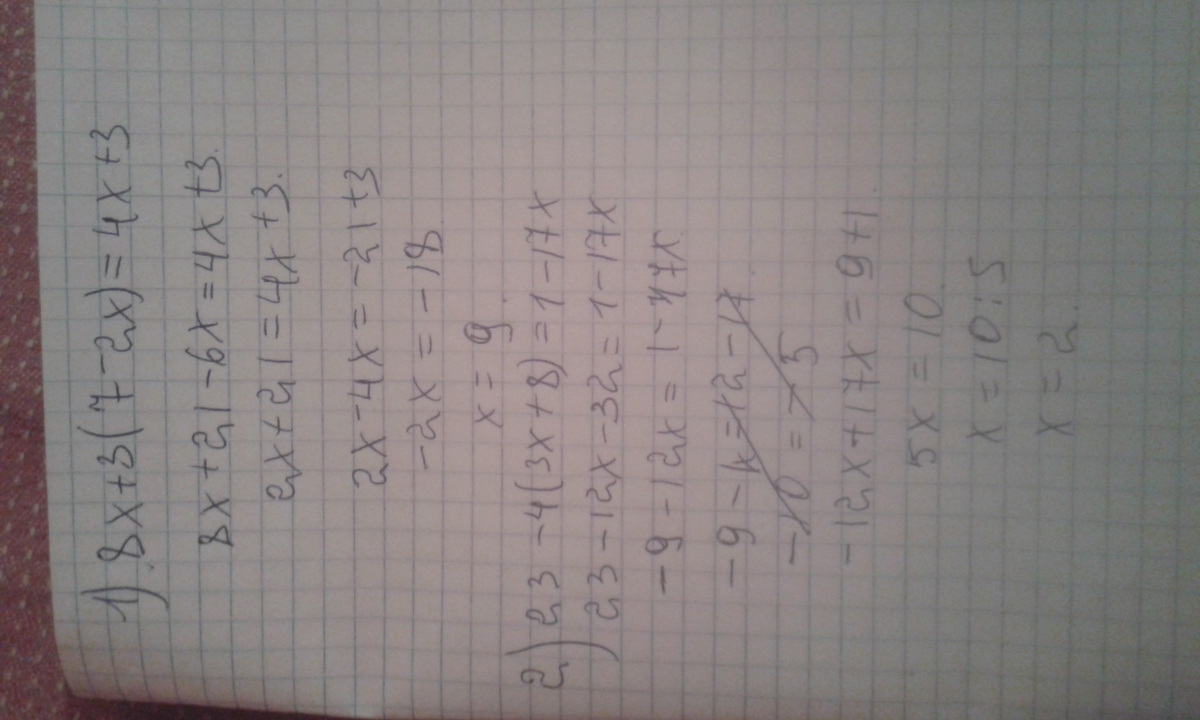 1) 8x+3(7-2x)=4x+3
8x+21-6x=4x+3.
2x+21=4x+3.
2x-4x=-21+3
-2x=-18
x=9.
2) 23-4(3x+8)=1-17x
23-12x-32=1-17x
-9-12x=1-17x.
-12x+17x=9+1.
5x=10.
x=10:5
x=2.